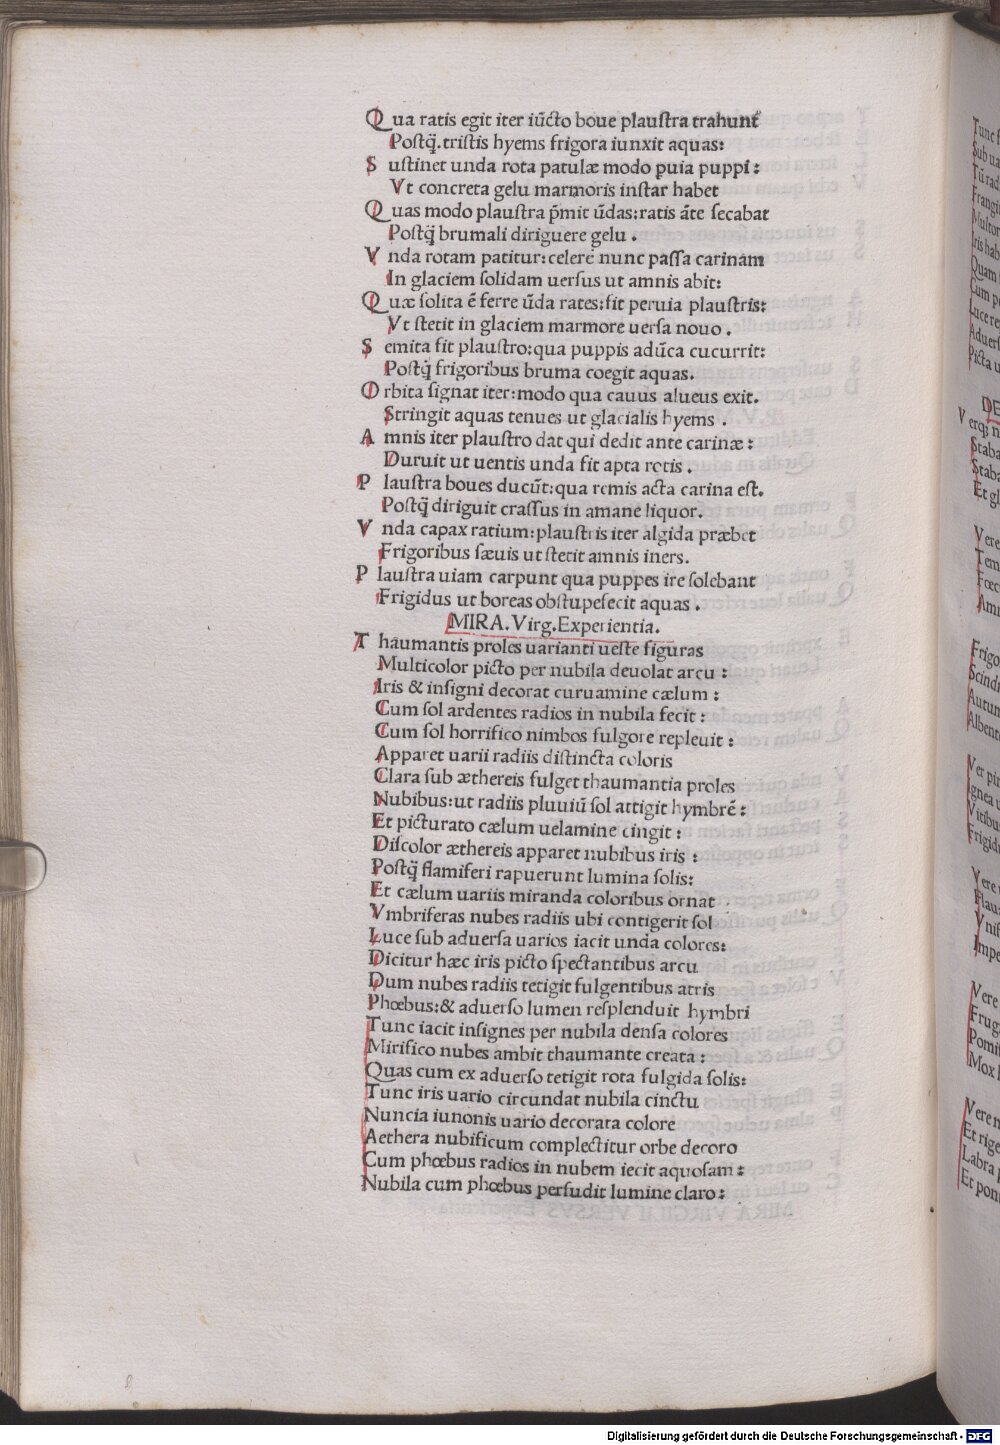 Qua ratis egit iter iūcto boue plauſtra trahunt
Poſtq̄. triſtis hyems frigora iunxit aquas:
Suſtinet unda rota patulæ modo puia puppi:
Vt concreta gelu marmoris inſtar habet
Quas modo plauſtra p̄mit ūdas: ratis āte ſecabat
Poſtq̄ brumali diriguere gelu.
Vnda rotam patitur: celerē nunc paſſa carinam
In glaciem ſolidam uerſus ut amnis abit:
Quæ ſolita ē ferre ūda rates: fit peruia plauſtris:
Vt ſtetit in glaciem marmore uerſa nouo.
Semita fit plauſtro: qua puppis adūca cucurrit:
Poſtq̄ frigoribus bruma coegit aquas.
Orbita ſignat iter: modo qua cauus alueus exit.
Stringit aquas tenues ut glacialis hyems.
Amnis iter plauſtro dat qui dedit ante carinæ:
Duruit ut uentis unda fit apta rotis.
Plauſtra boues ducūt: qua remis acta carina eſt.
Poſtq̄ diriguit craſſus in amane liquor.
Vnda capax ratium: plauſtris iter algida præbet
Frigoribus ſæuis ut ſtetit amnis iners.
Plauſtra uiam carpunt qua puppes ire ſolebant
Frigidus ut boreas obſtupefecit aquas.
MIRA. Virg. Experientia.
Thaumantis proles uarianti ueſte figuras
Multicolor picto per nubila deuolat arcu:
Iris & inſigni decorat curuamine cælum:
Cum ſol ardentes radios in nubila fecit:
Cum ſol horrifico nimbos fulgore repleuit:
Apparet uarii radiis diſtincta coloris
Clara ſub æthereis fulget thaumantia proles
Nubibus: ut radiis pluuiū ſol attigit hymbrē:
Et picturato cælum uelamine cingit:
Diſcolor æthereis apparet nubibus iris:
Poſtq̄ flamiferi rapuerunt lumina ſolis:
Et cælum uariis miranda coloribus ornat.
Vmbriferas nubes radiis ubi contigerit ſol
Luce ſub aduerſa uarios iacit unda colores:
Dicitur hæc iris picto ſpectantibus arcu
Dum nubes radiis tetigit fulgentibus atris
Phœbus: & aduerſo lumen reſplenduit hymbri
Tunc iacit inſignes per nubila denſa colores
Mirifico nubes ambit thaumante creata:
Quas cum ex aduerſo tetigit rota fulgida ſolis:
Tunc iris uario circundat nubila cinctu
Nuncia iunonis uario decorata colore
Aethera nubificum complectitur orbe decoro
Cum phœbus radios in nubem iecit aquoſam:
Nubila cum phœbus perfudit lumine claro:
Digitalisierung gefördert durch die Deutsche Forschungsgemeinschaft - DFG